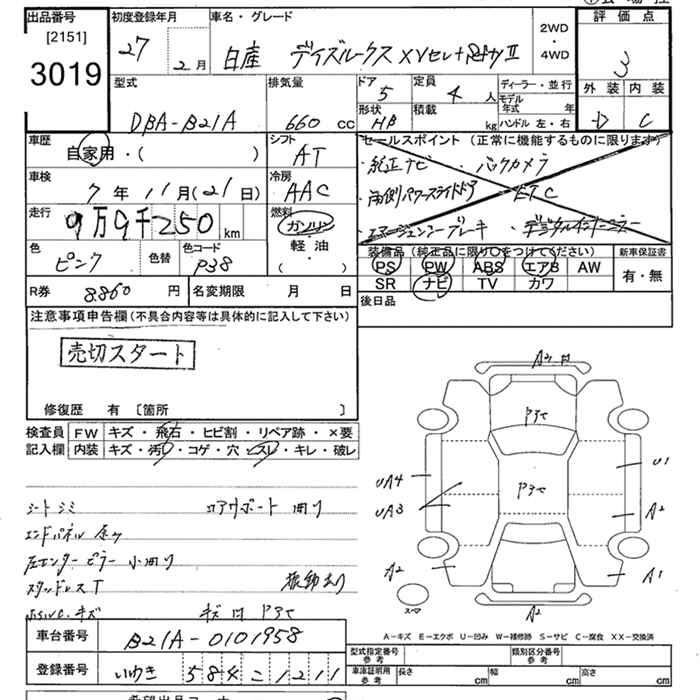 出品番号 初度登録年月 車名・グレード 評価点
[2151]
3019 27年 2月 日産 デイズルークス XVセレ+セーフティII 2WD・4WD 3
型式 排気量 ドア 5 定員 4人 ディーラー・並行 外装 内装
DBA-B21A 660cc 形状 HB 積載 kg モデル年式 年 ハンドル 左・右 D C
車歴 自家用・( ) シフト AT セールスポイント (正常に機能するものに限ります)
・純正ナビ ・バックカメラ
車検 7年11月(21日) 冷房 AAC ・両側パワースライドドア ETC
走行 9万9千250km 燃料 ガソリン ・エマージェンシーブレーキ ・デジタルインナーミラー
色 ピンク 色替 色コード P38 軽油・( ) 装備品 (純正品に限り○をつけてください) 新車保証書
PS PW ABS エアB AW 有・無
R券 8860円 名変期限 月 日 SR ナビ TV カワ
後日品
注意事項申告欄 (不具合内容等は具体的に記入して下さい)
売切スタート
修復歴 有 〔箇所 〕
検査員 FW キズ・飛石・ヒビ割・リペア跡・×要
記入欄 内装 キズ・汚れ・コゲ・穴・スレ・キレ・破レ
A2
Pアセ
UA4 U1
Pアセ
UA3 A2
A2 A1
A2
シートシミ コアサポート 曲り
エンドパネル
左センターピラー 小曲り
スタッドレスT
キズ
A−キズ E−エクボ U−凹み W−補修跡 S−サビ C−腐食 XX−交換済
車台番号 B21A-0101958 型式指定番号 参考 類別区分番号 参考
登録番号 いわき 584 こ 1211 車庫証明用 参考 長さ cm 幅 cm 高さ cm